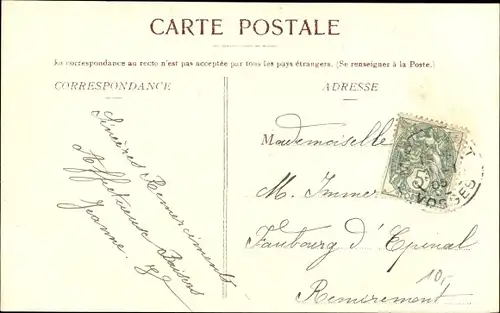 CARTE POSTALE
La correspondance au recto n'est pas acceptée par tous les pays étrangers. (Se renseigner à la Poste.)
CORRESPONDANCE
ADRESSE
Sincères Remerciements
Affectueux Baisers
Jeanne
Mademoiselle
M. Immer
Faubourg d'Epinal
Remiremont
5
VOSGES
10,-